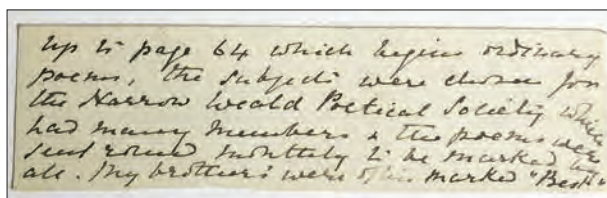 up to page 64 which begins ordinary
poems, the subjects were chosen for
the Harrow Weald Poetical Society which
had many members & the poems were
sent round monthly to be marked by
all. My brother's were often marked "Best"